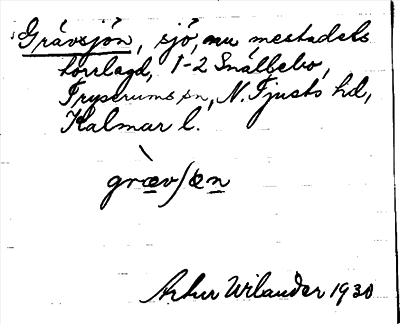 Grävsjön, sjö, nu mestadels
torrlagd, 1-2 Snällebo,
Fryserums sn, N. Tjusts hd,
Kalmar l.
græv∫æn
Artur Wilander 1930